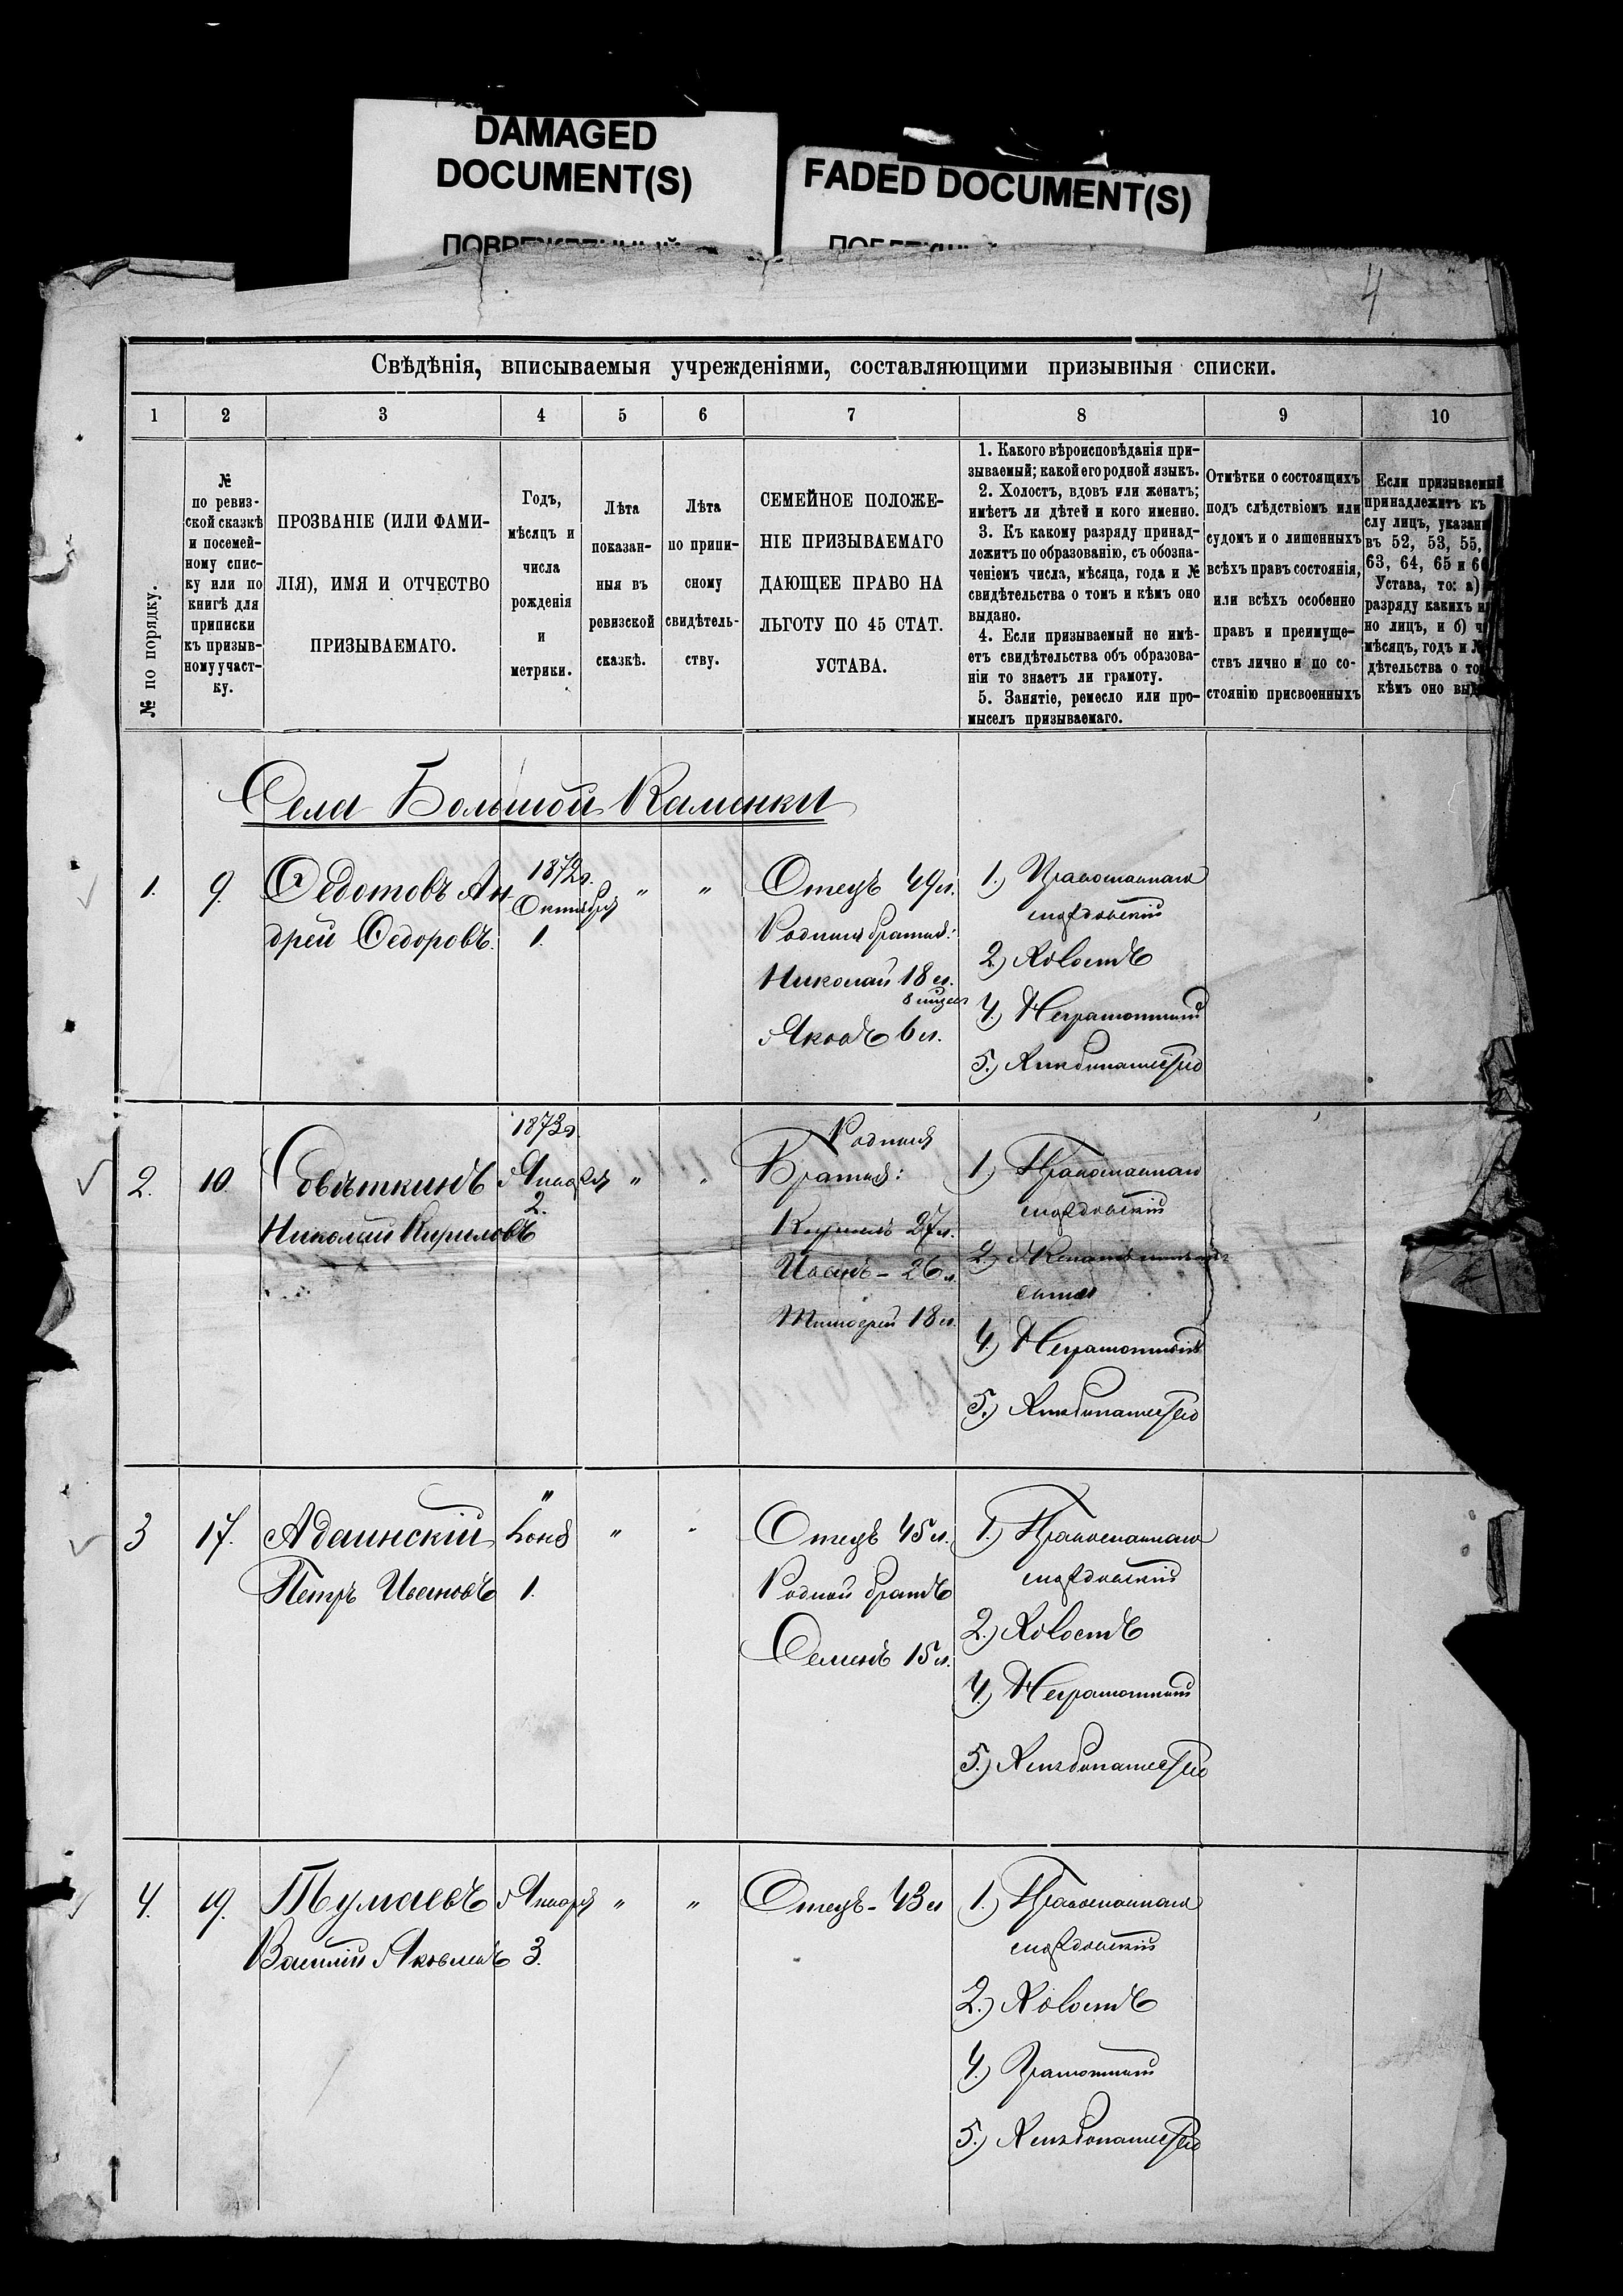 DAMAGED
DOCUMENT(S)
FADED DOCUMENT(S)
4
Свѣдѣнія, вписываемыя учрежденіями, составляющими призывныя списки.
1 2 3 4 5 6 7 8 9 10
№ по порядку.
№
по ревиз-
ской сказкѣ
и посемей-
ному спис-
ку или по
книгѣ для
приписки
къ призыв-
ному участ-
ку.
ПРОЗВАНІЕ (ИЛИ ФАМИ-
ЛІЯ), ИМЯ И ОТЧЕСТВО
ПРИЗЫВАЕМАГО.
Годъ,
мѣсяцъ и
числа
рожденія
и
метрики.
Лѣта
показан-
ныя въ
ревизской
сказкѣ.
Лѣта
по припи-
сному
свидѣтель-
ству.
СЕМЕЙНОЕ ПОЛОЖЕ-
НІЕ ПРИЗЫВАЕМАГО
ДАЮЩЕЕ ПРАВО НА
ЛЬГОТУ ПО 45 СТАТ.
УСТАВА.
1. Какого вѣроисповѣданія при-
зываемый; какой его родной языкъ.
2. Холостъ, вдовъ или женатъ;
имѣетъ ли дѣтей и кого именно.
3. Къ какому разряду принад-
лежитъ по образованію, съ обозна-
ченіемъ числа, мѣсяца, года и №
свидѣтельства о томъ и кѣмъ оно
выдано.
4. Если призываемый не имѣ-
етъ свидѣтельства объ образова-
ніи то знаетъ ли грамоту.
5. Занятіе, ремесло или про-
мыселъ призываемаго.
Отмѣтки о состоящихъ
подъ слѣдствіемъ или
судомъ и о лишенныхъ
всѣхъ правъ состоянія,
или всѣхъ особенно
правъ и преимуще-
ствъ лично и по со-
стоянію присвоенныхъ
Если призываемый
принадлежитъ къ
слу лицъ, указан
въ 52, 53, 55,
63, 64, 65 и 6
Устава, то: а)
разряду какихъ и
но лицъ, и б) ч
мѣсяцъ, годъ и №
дѣтельства о то
кѣмъ оно выд
Села Большой Каменки
1. 9. Ѳедотовъ Ан-
дрей Ѳедоровъ.
1872 г.
Октября
1.
" "
Отецъ 49 л.
Родныя братья:
Николай 18 л.
8 мцев
Яковъ 6 л.
1.) Православнаго
мордовскій
2.) Холостъ
4.) Неграмотный
5.) Хлебопашество
2. 10. Совѣткинъ
Николай Кириловъ
1873 г.
Января
2.
" "
Родныя
Братья:
Кирилъ 27 л.
Иванъ - 26 л.
Тимофей 18 л.
1.) Православнаго
мордовскій
2.) Женатъ
4.) Неграмотный
5.) Хлебопашество
3 17. Адаинскій
Петръ Ивановъ
"
1.
" "
Отецъ 45 л.
Родной братъ
Семенъ 15 л.
1.) Православнаго
мордовскій
2.) Холостъ
4.) Неграмотный
5.) Хлебопашество
4. 19. Тумаевъ
Василій Яковлевъ
Января
3.
" "
Отецъ - 43 л
1.) Православнаго
мордовскій
2.) Холостъ
4.) Грамотный
5.) Хлебопашество